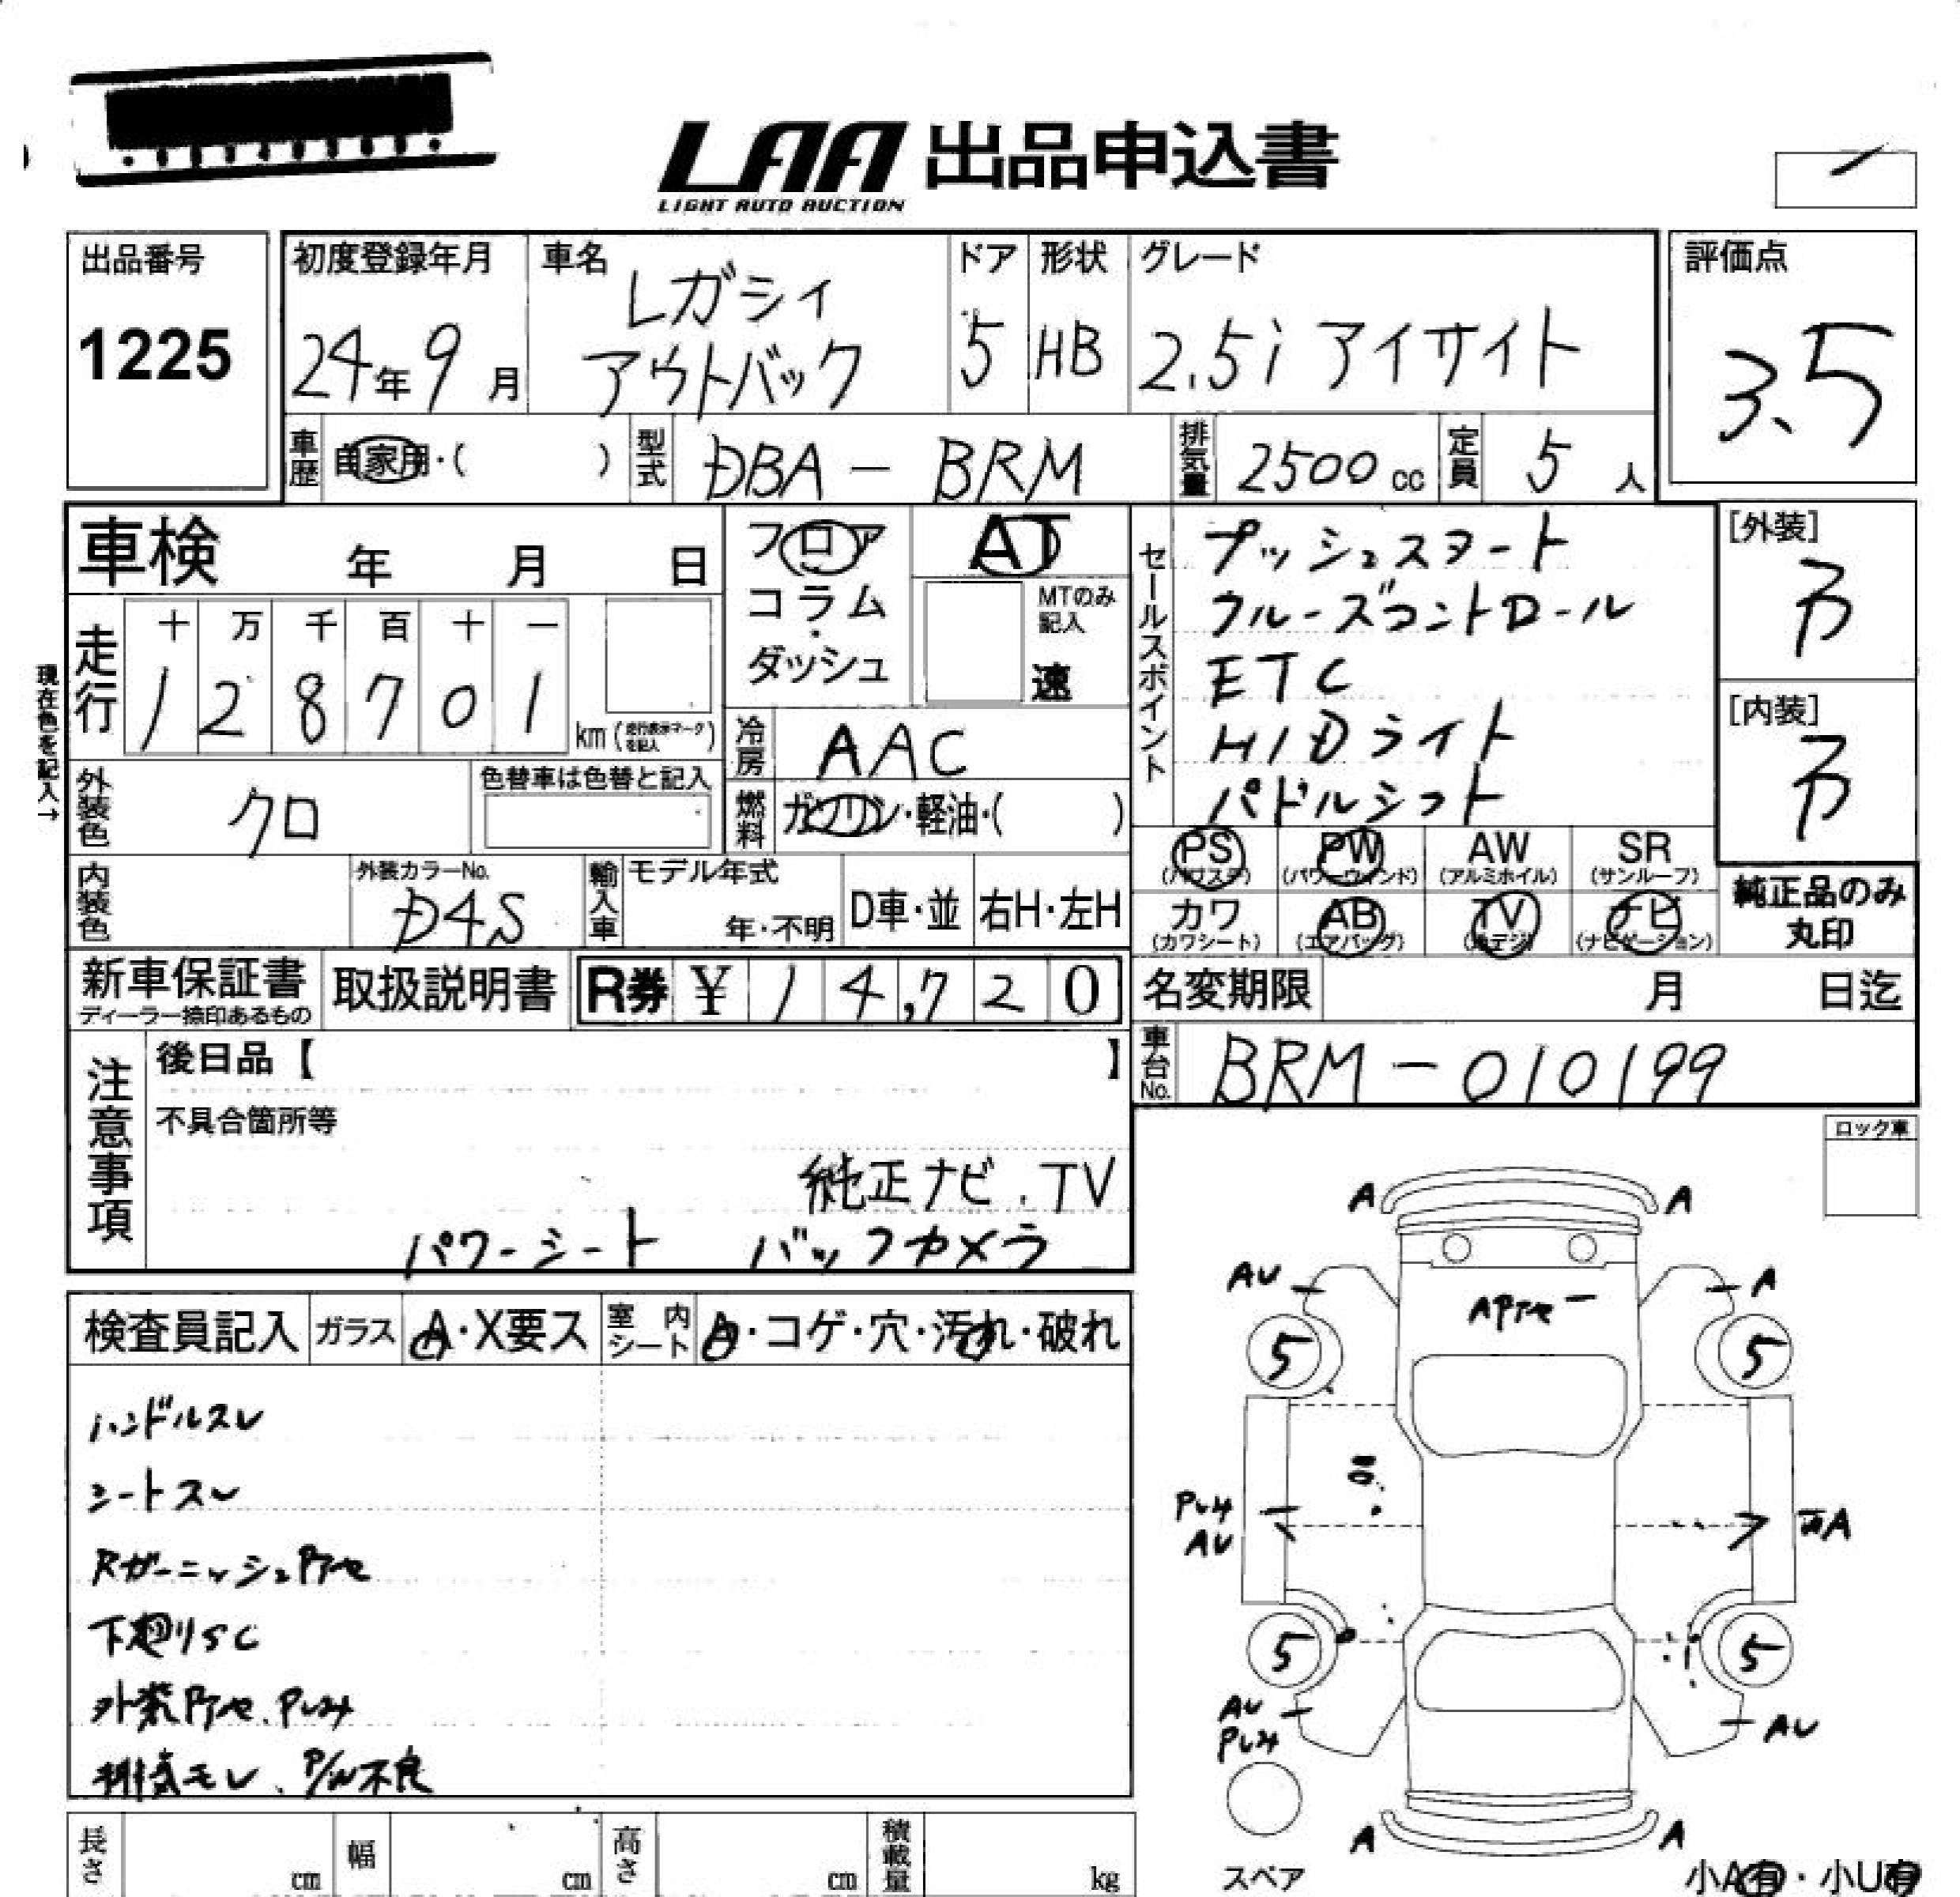 LAA 出品申込書
LIGHT AUTO AUCTION
出品番号
1225
初度登録年月
24年9月
車名
レガシィ
アウトバック
ドア
5
形状
HB
グレード
2.5i アイサイト
評価点
3.5
車歴
自家用・( )
型式
DBA - BRM
排気量
2500cc
定員
5人
車検 年 月 日
フロア
コラム
・
ダッシュ
AT
MTのみ
記入
速
セールスポイント
プッシュスタート
クルーズコントロール
ETC
HIDライト
パドルシフト
[外装]
[内装]
現在色を記入→
走行
十 万 千 百 十 一
1 2 8 7 0 1
km (走行表示マークを記入)
冷房
AAC
外装色
クロ
色替車は色替と記入
燃料
ガソリン・軽油・( )
PS
(パワステ)
PW
(パワーウィンド)
AW
(アルミホイル)
SR
(サンルーフ)
カワ
(カワシート)
AB
(エアバッグ)
TV
(地デジ)
ナビ
(ナビゲーション)
純正品のみ
丸印
内装色
外装カラーNo.
D4S
輸入車
モデル年式
年・不明
D車・並
右H・左H
新車保証書
ディーラー捺印あるもの
取扱説明書
R券 ¥ 1 4,7 2 0
名変期限 月 日迄
車台No.
BRM-010199
注意事項
後日品【 】
不具合箇所等
純正ナビ.TV
パワーシート バックカメラ
ロック車
検査員記入
ガラス
A・X要ス
室内シート
・コゲ・穴・汚れ・破れ
ハンドルスレ
シートスレ
Rガーニッシュ
下廻りSC
外装
排気モレ、P/W不良
A A
AU A
5 5
AU A
5 5
AU AU
A A
スペア
小A有・小U有
長さ cm
幅 cm
高さ cm
積載量 kg